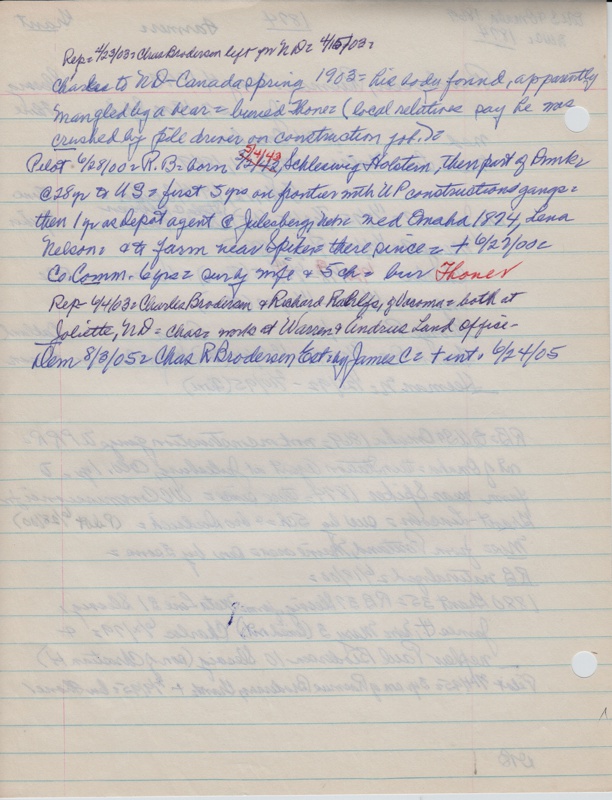 Rep = 4/23/03 = Chas Broderson left for ND = 4/15/03 =
Charles to ND-Canada spring 1903 = his body found, apparently
mangled by a bear = buried Thone = (local relatives say he was
crushed by pile driver on construction job.) =
Pilot = 6/28/00 = R.B = born 5/4/42 Schleswig Holstein, then part of Dmrk =
@ 28 yr to US = first 5 yrs on frontier with UP construction gangs =
then 1 yr as depot agent @ Julesberg, = med Omaha 1874, Lena
Nelson = & to farm near Spiker there since = + 6/27/00 =
Co Comm. 6 yrs = surv by wife & 5 ch = bur Thone ✓
Rep = 6/4/03 = Charles Broderson & Richard Rahlfs, of Uvaroma = both at
Joliette, ND = Chas = works at Warren & Andrus Land Office -
Dem 8/3/05 = Chas R Broderson Est = by James C = + int. 6/24/05